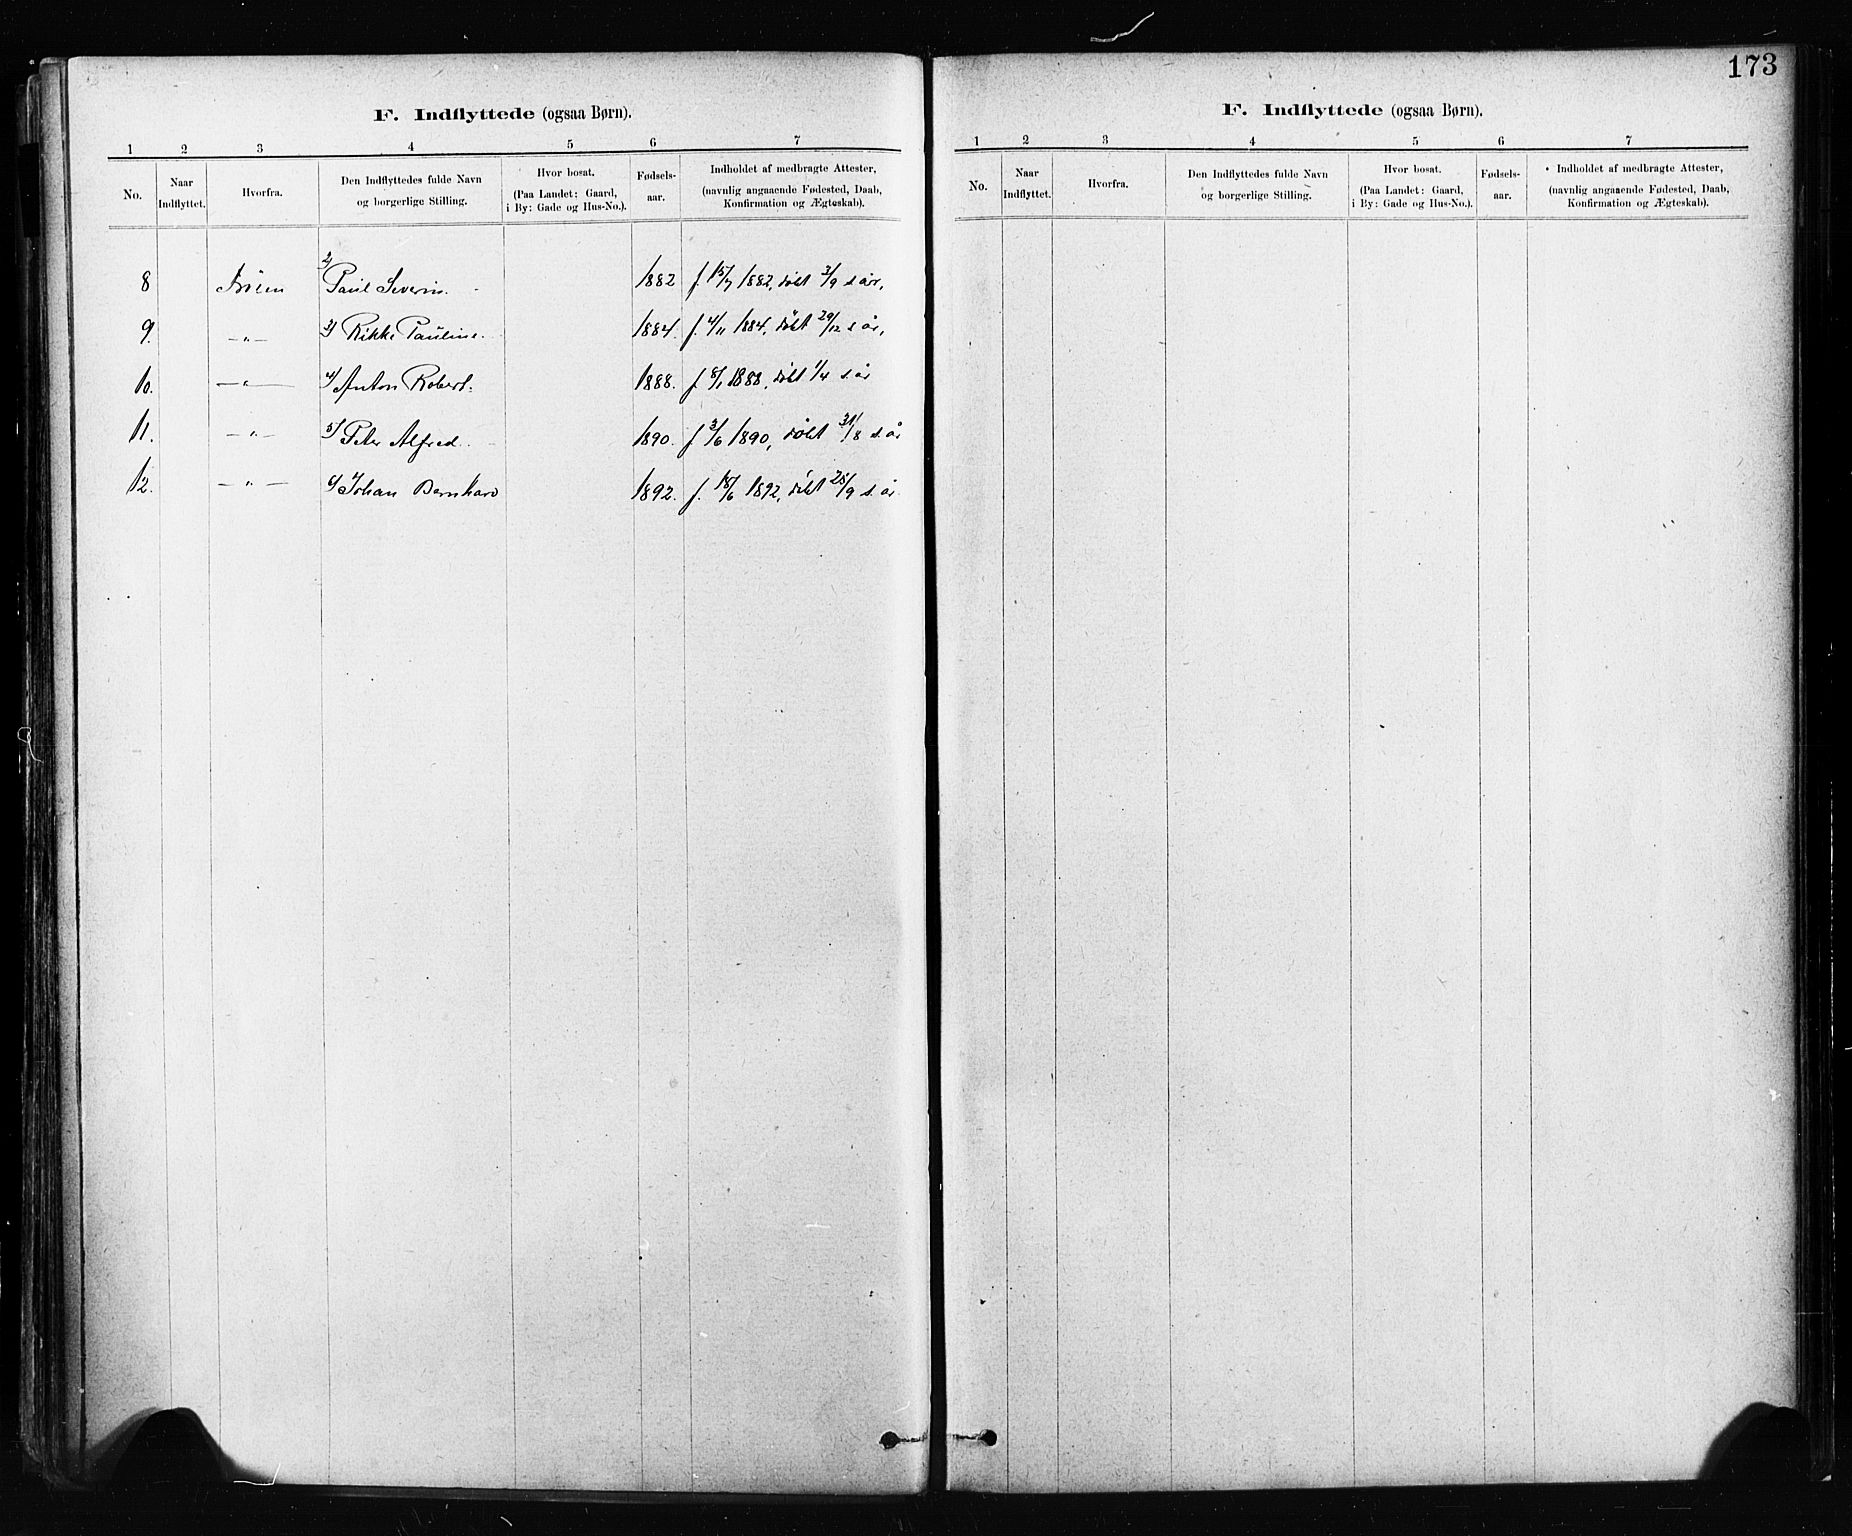 173
F. Indflyttede (ogsaa Børn).
1 2 3 4 5 6 7
No. Naar Indflyttet. Hvorfra. Den Indflyttedes fulde Navn og borgerlige Stilling. Hvor bosat. (Paa Landet: Gaard, i By: Gade og Hus-No.). Fødsels-aar. Indholdet af medbragte Attester, (navnlig angaaende Fødested, Daab, Konfirmation og Ægteskab).
8 2) Paul Severin. 1882 f. 15/7 1882, döbt 3/9 s. år,
9. -"- 3) Rikke Pauline. 1884. f. 4/11 1884, döbt 29/12 s år,
10. -"- 4) Anton Robert. 1888. f. 8/1 1888, döbt 1/4 s. år
11. -"- 5) Peter Alfred. 1890. f. 3/6 1890, döbt 31/8 s. år
12. -"- Johan Bernhard 1892. f. 18/6 1892, döbt 25/9 s. år.
F. Indflyttede (ogsaa Børn).
1 2 3 4 5 6 7
No. Naar Indflyttet. Hvorfra. Den Indflyttedes fulde Navn og borgerlige Stilling. Hvor bosat. (Paa Landet: Gaard, i By: Gade og Hus-No.). Fødsels-aar. Indholdet af medbragte Attester, (navnlig angaaende Fødested, Daab, Konfirmation og Ægteskab).